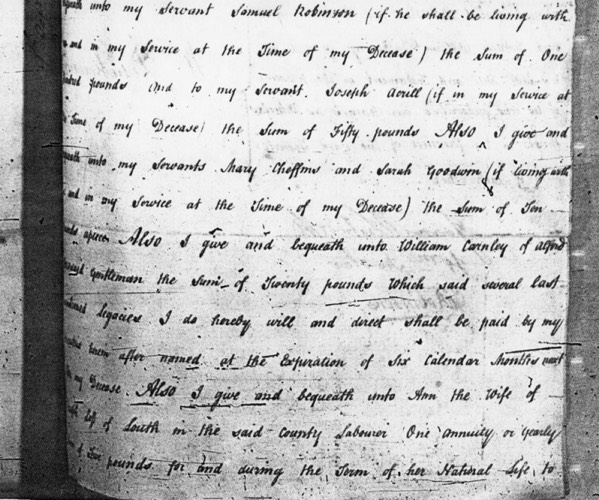 unto my Servant Samuel Robinson (if he shall be living with
and in my Service at the Time of my Decease) the Sum of One
pounds And to my Servant Joseph Acrill (if in my Service at
Time of my Decease) the Sum of Fifty pounds Also I give and
unto my Servants Mary Cheffins and Sarah Goodwin (if living with
and in my Service at the Time of my Decease) the Sum of Ten
apiece Also I give and bequeath unto William Carnley of Alford
Gentleman the Sum of Twenty pounds which said several last
Legacies I do hereby will and direct shall be paid by my
herein after named at the Expiration of Six Calendar Months next
my Decease Also I give and bequeath unto Ann the Wife of
of Louth in the said County Labourer One annuity or yearly
pounds for and during the Term of her Natural Life to